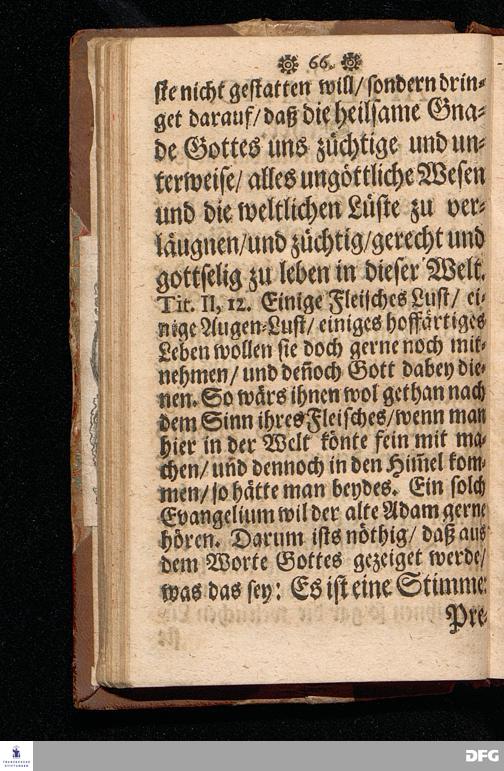 66.
ste nicht gestatten will/ sondern drin-
get darauf/ daß die heilsame Gna-
de Gottes uns züchtige und un-
terweise/ alles ungöttliche Wesen
und die weltlichen Lüste zu ver-
läugnen/ und züchtig/ gerecht und
gottselig zu leben in dieser Welt.
Tit. II, 12. Einige Fleisches Lust/ ei-
nige Augen-Lust/ einiges hoffärtiges
Leben wollen sie doch gerne noch mit-
nehmen/ und deñoch Gott dabey die-
nen. So wärs ihnen wol gethan nach
dem Sinn ihres Fleisches/ wenn man
hier in der Welt könte fein mit ma-
chen/ und dennoch in den Him̃el kom-
men/ so hätte man beydes. Ein solch
Evangelium wil der alte Adam gerne
hören. Darum ists nöthig/ daß aus
dem Worte Gottes gezeiget werde/
was das sey: Es ist eine Stimme
Pre-
FRANCKESCHE
STIFTUNGEN
DFG